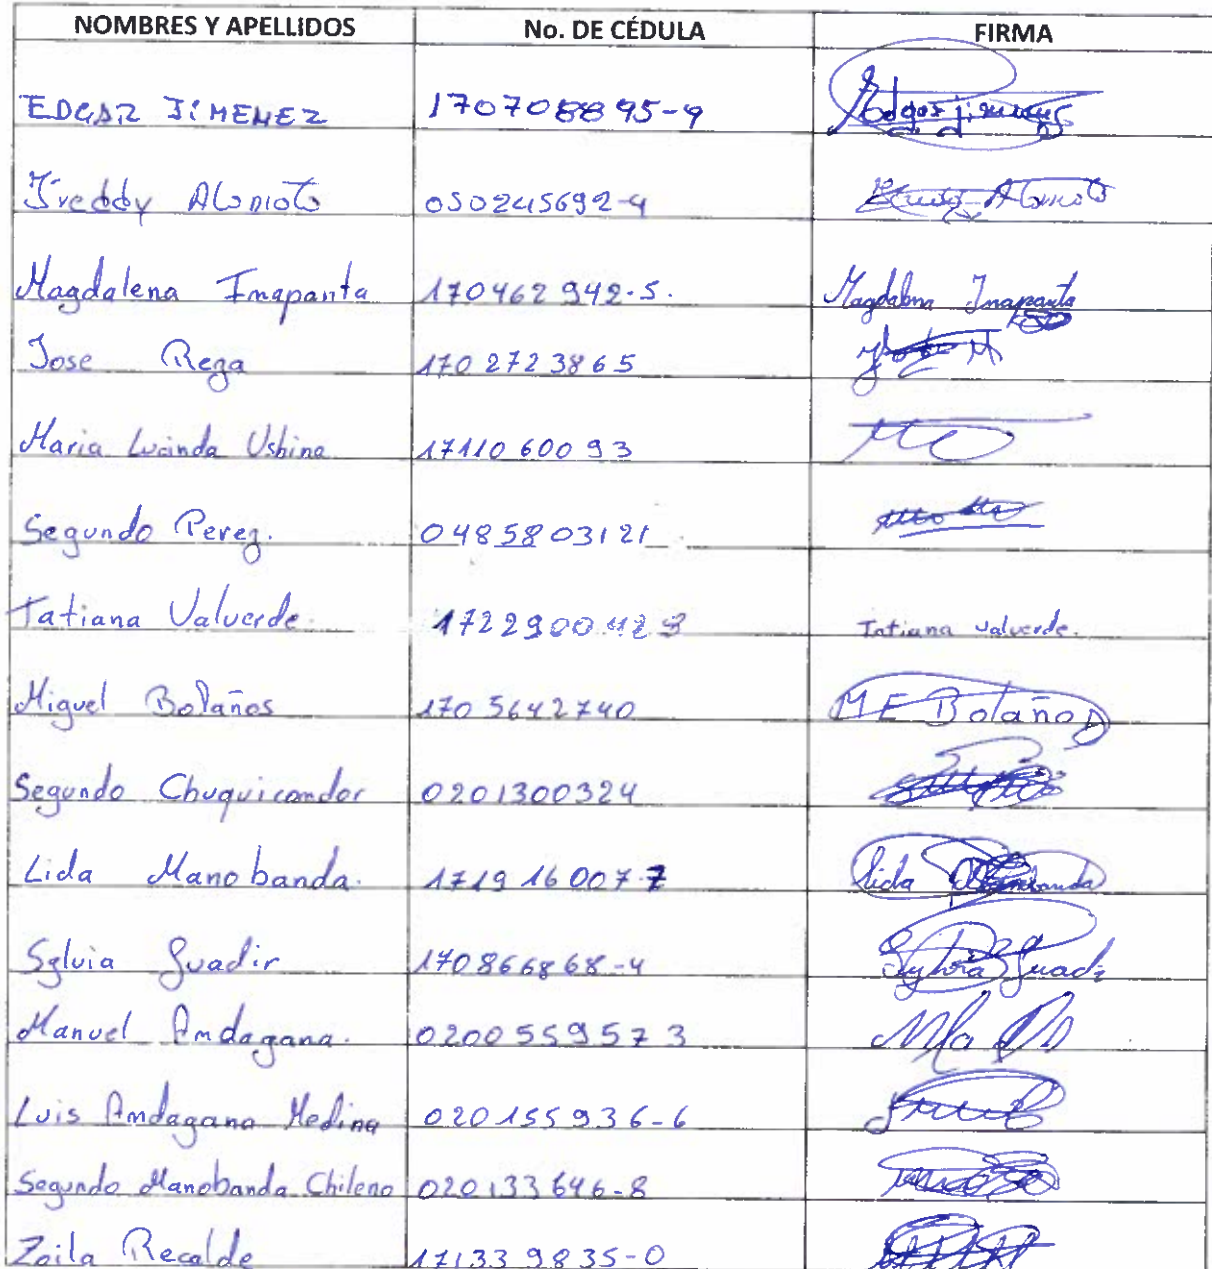 NOMBRES Y APELLIDOS No. DE CÉDULA FIRMA
EDGAR JIMENEZ 170708895-9 Edgar Jimenez
Freddy Alomoto 050245692-4 Alomoto
Magdalena Imapanta 170462942-5. Magdalena Imapanta
Jose Rega 1702723865
Maria Lucinda Ushina 1711060093
Segundo Perez. 0485803121
Tatiana Valverde. 1722900423 Tatiana Valverde.
Miguel Bolaños 1705642740 M E Bolaños
Segundo Chuquicondor 0201300324
Lida Manobanda. 171916007-7 Lida Manobanda
Sylvia Guadir 170866868-4 Sylvia Guadir
Manuel Andagana. 0200559573
Luis Andagana Medina 020155936-6
Segundo Manobanda Chileno 020133646-8
Zoila Recalde 171339835-0